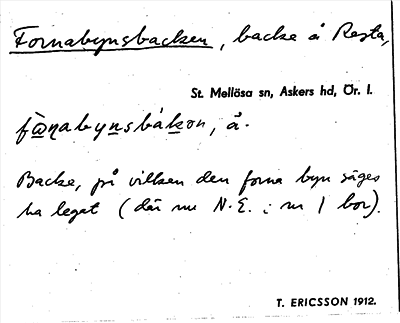 Fornabynsbacken, backe å Resta,
St. Mellösa sn, Askers hd, Ör. l.
fɷ̀ɳabynsbákən, å.
Backe, på vilken den forna byn säges
ha legat (där nu N.E. i nr 1 bor).
T. ERICSSON 1912.